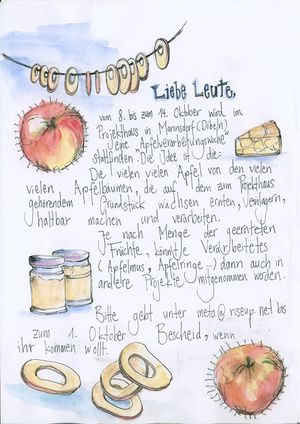 Liebe Leute,
vom 8. bis zum 14. Oktober wird im
Projekthaus in Mannsdorf (Döbeln)
eine „Apfelverarbeitungswoche"
stattfinden. Die Idee ist die:
Die vielen vielen Äpfel von den vielen
vielen Apfelbäumen, die auf dem zum Projekthaus
gehörendem Grundstück wachsen ernten, veredlagern,
haltbar machen und verarbeiten.
Je nach Menge der geernteten
Früchte, könnt ihr Verarbeitetes
(Apfelmus, Apfelringe ...) dann auch in
andere Projekte mitgenommen werden.
Bitte gebt unter meta@riseup.net bis
zum 1. Oktober Bescheid, wenn
ihr kommen wollt.